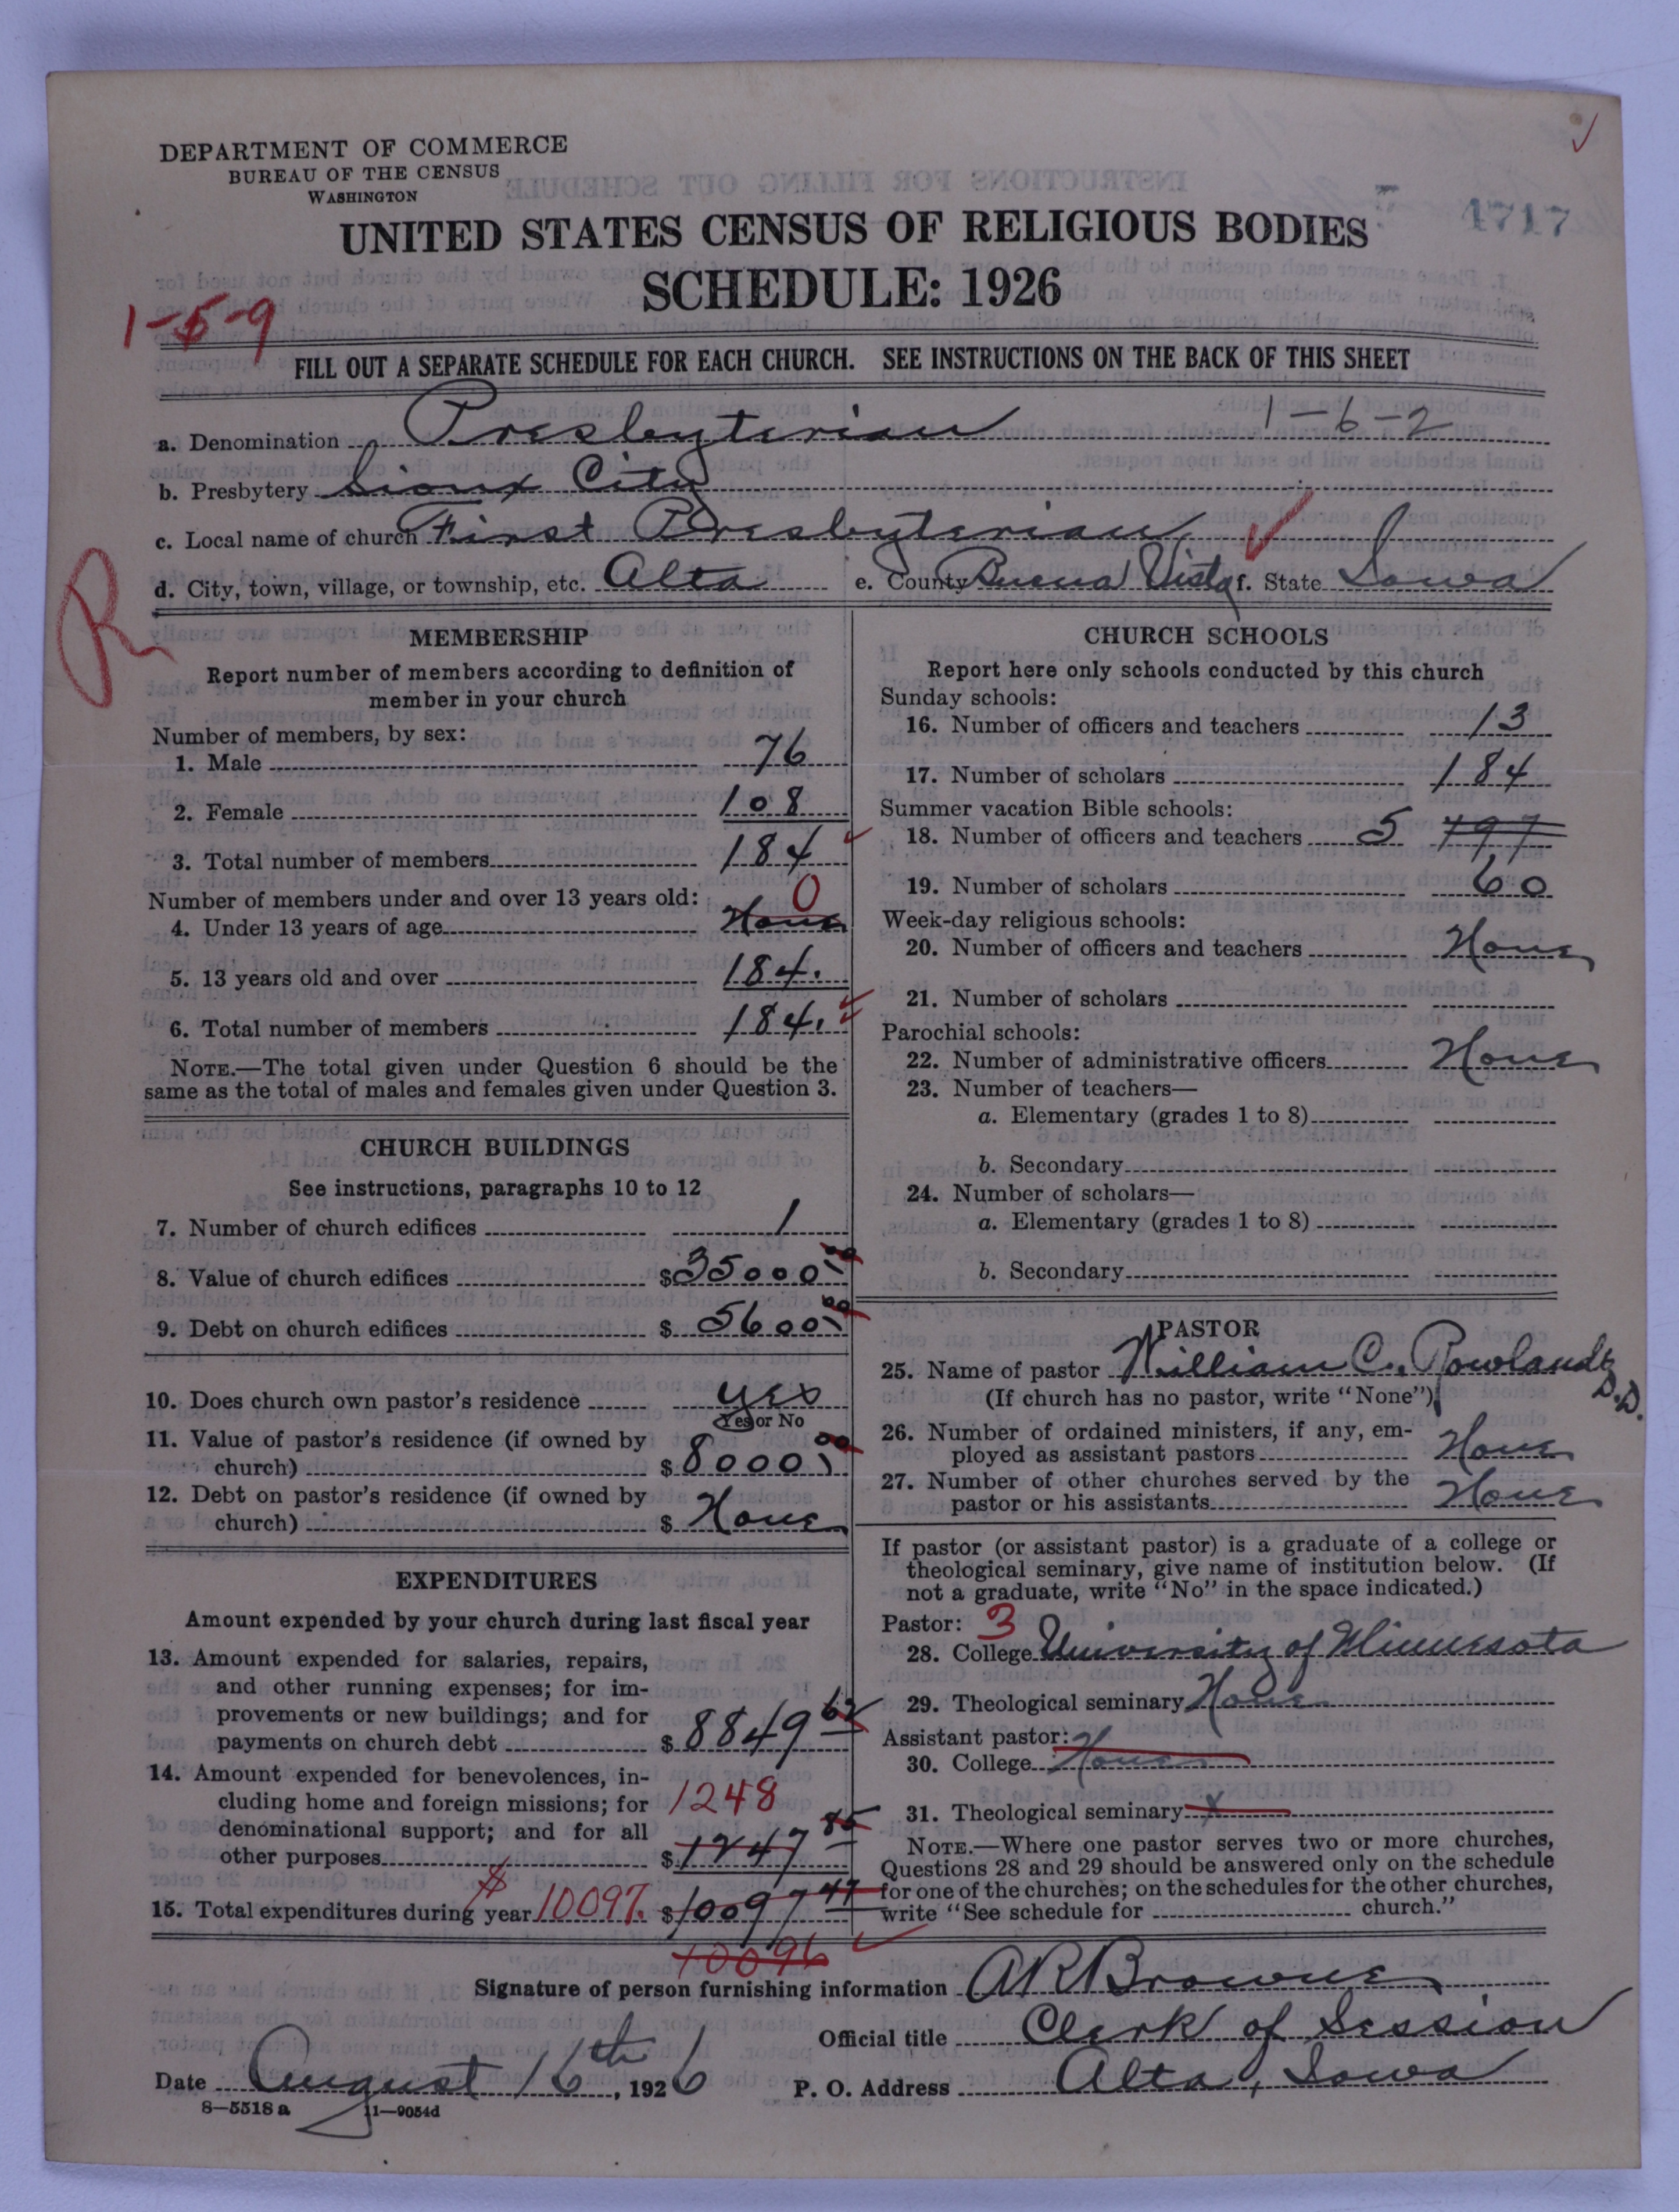 DEPARTMENT OF COMMERCE
BUREAU OF THE CENSUS
WASHINGTON
4717
UNITED STATES CENSUS OF RELIGIOUS BODIES
SCHEDULE: 1926
1-5-9
FILL OUT A SEPARATE SCHEDULE FOR EACH CHURCH. SEE INSTRUCTIONS ON THE BACK OF THIS SHEET
a. Denomination Presbyterian 1-6-2
b. Presbytery Sioux City
c. Local name of church First Presbyterian
d. City, town, village, or township, etc. Alta e. County Buena Vista f. State Iowa
R
MEMBERSHIP
Report number of members according to definition of
member in your church
Number of members, by sex:
1. Male 76
2. Female 108
3. Total number of members 184
Number of members under and over 13 years old:
4. Under 13 years of age None 0
5. 13 years old and over 184.
6. Total number of members 184.
NOTE.—The total given under Question 6 should be the
same as the total of males and females given under Question 3.
CHURCH BUILDINGS
See instructions, paragraphs 10 to 12
7. Number of church edifices 1
8. Value of church edifices $35000.00
9. Debt on church edifices $5600.00
10. Does church own pastor's residence yes
Yes or No
11. Value of pastor's residence (if owned by
church) $8000.00
12. Debt on pastor's residence (if owned by
church) $ None
EXPENDITURES
Amount expended by your church during last fiscal year
13. Amount expended for salaries, repairs,
and other running expenses; for im-
provements or new buildings; and for
payments on church debt $8849 62
14. Amount expended for benevolences, in-
cluding home and foreign missions; for 1248
denominational support; and for all
other purposes $1247 85
15. Total expenditures during year $10097. $10097 47
10096
CHURCH SCHOOLS
Report here only schools conducted by this church
Sunday schools:
16. Number of officers and teachers 13
17. Number of scholars 184
Summer vacation Bible schools:
18. Number of officers and teachers 5 797
19. Number of scholars 60
Week-day religious schools:
20. Number of officers and teachers None
21. Number of scholars
Parochial schools:
22. Number of administrative officers None
23. Number of teachers—
a. Elementary (grades 1 to 8)
b. Secondary
24. Number of scholars—
a. Elementary (grades 1 to 8)
b. Secondary
PASTOR
25. Name of pastor William C. Rowlands D.D.
(If church has no pastor, write "None")
26. Number of ordained ministers, if any, em-
ployed as assistant pastors None
27. Number of other churches served by the
pastor or his assistants None
If pastor (or assistant pastor) is a graduate of a college or
theological seminary, give name of institution below. (If
not a graduate, write "No" in the space indicated.)
Pastor: 3
28. College University of Minnesota
29. Theological seminary None
Assistant pastor:
30. College None
31. Theological seminary x
NOTE.—Where one pastor serves two or more churches,
Questions 28 and 29 should be answered only on the schedule
for one of the churches; on the schedules for the other churches,
write "See schedule for church."
Signature of person furnishing information AR Browne
Official title Clerk of Session
Date August 16th, 1926 P. O. Address Alta, Iowa
8—5518 a 11—9054d